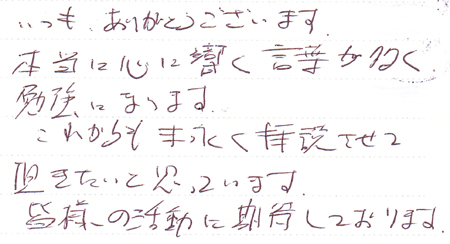 いつも、ありがとうございます.
本当に心に響く言葉が多く.
勉強になります.
これからも末永く拝読させて
頂きたいと思っています.
皆様の活動に期待しております.